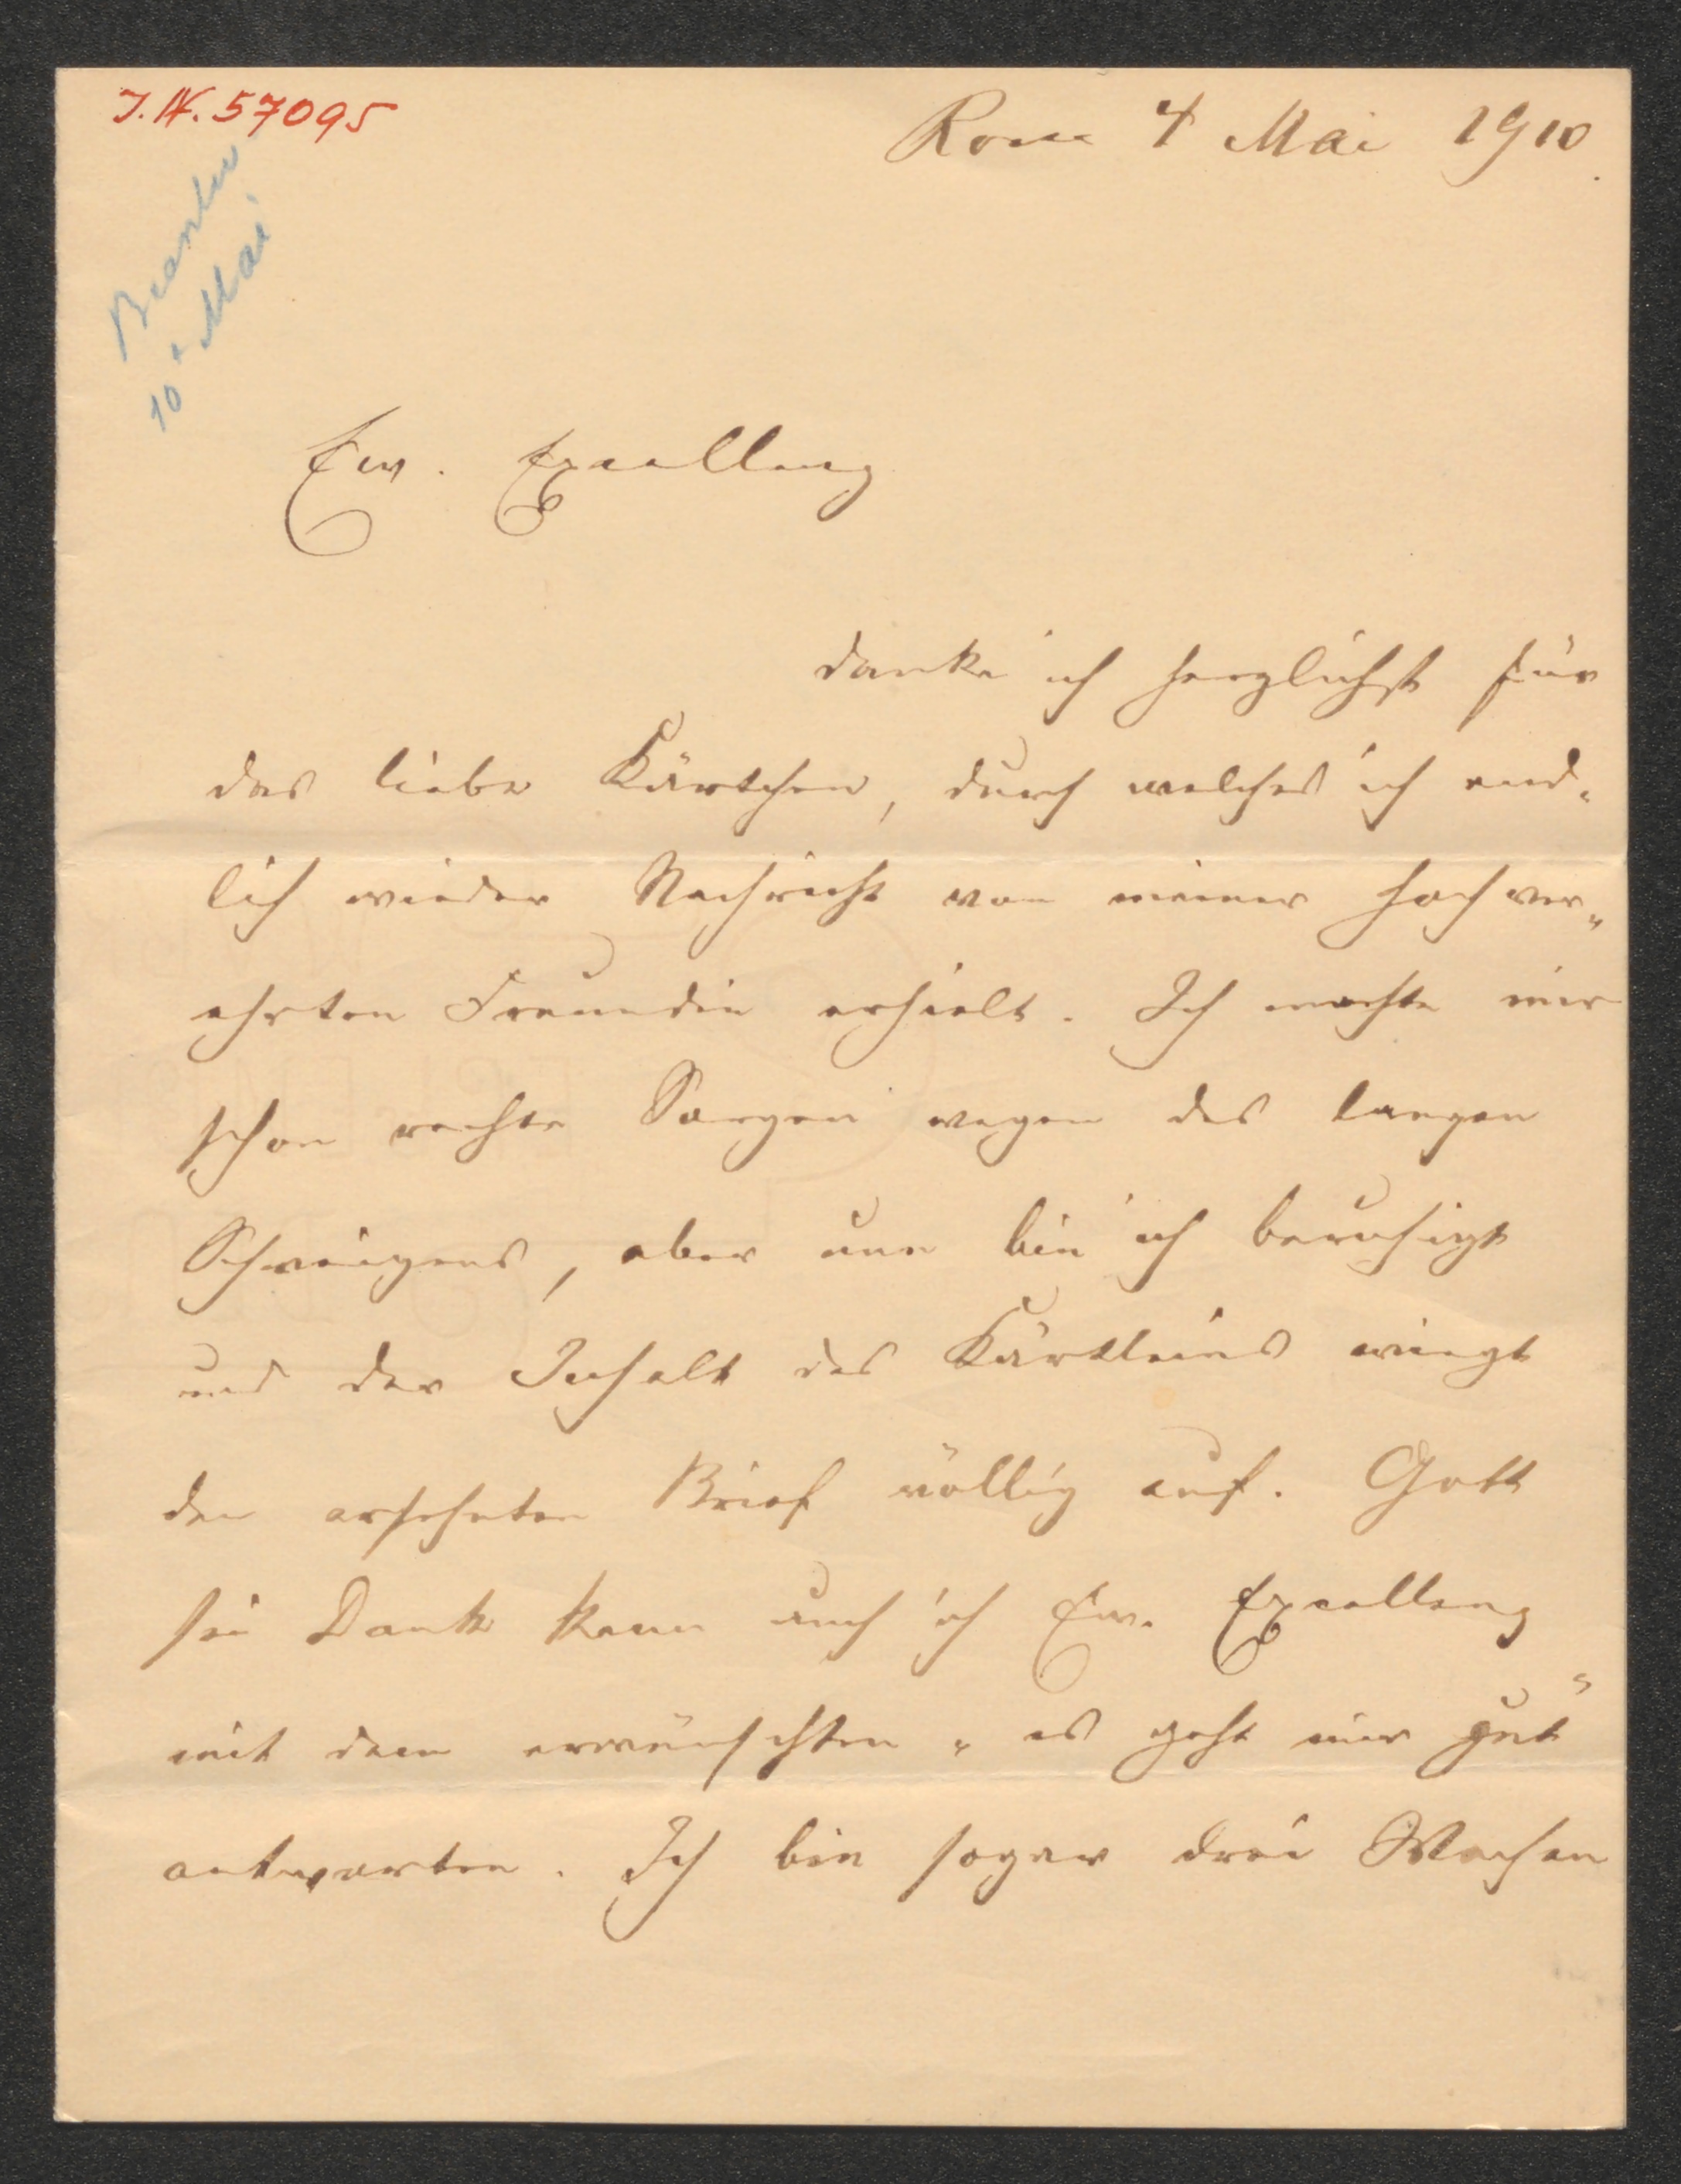 J.N. 57095
Rom 4 Mai 1910.
Beantw.
10t Mai
Ew. Excellenz
danke ich herzlichst für
das liebe Kärtchen, durch welches ich end-
lich wieder Nachricht von meiner hochver-
ehrten Freundin erhielt. Ich machte mir
schon rechte Sorgen wegen des langen
Schweigens, aber nun bin ich beruhigt
und der Inhalt des Kärtleins wiegt
den ersehnten Brief völlig auf. Gott
sei Dank kann auch ich Ew. Excellenz
mit dem erwünschten „es geht mir gut"
antworten. Ich bin sogar drei Wochen